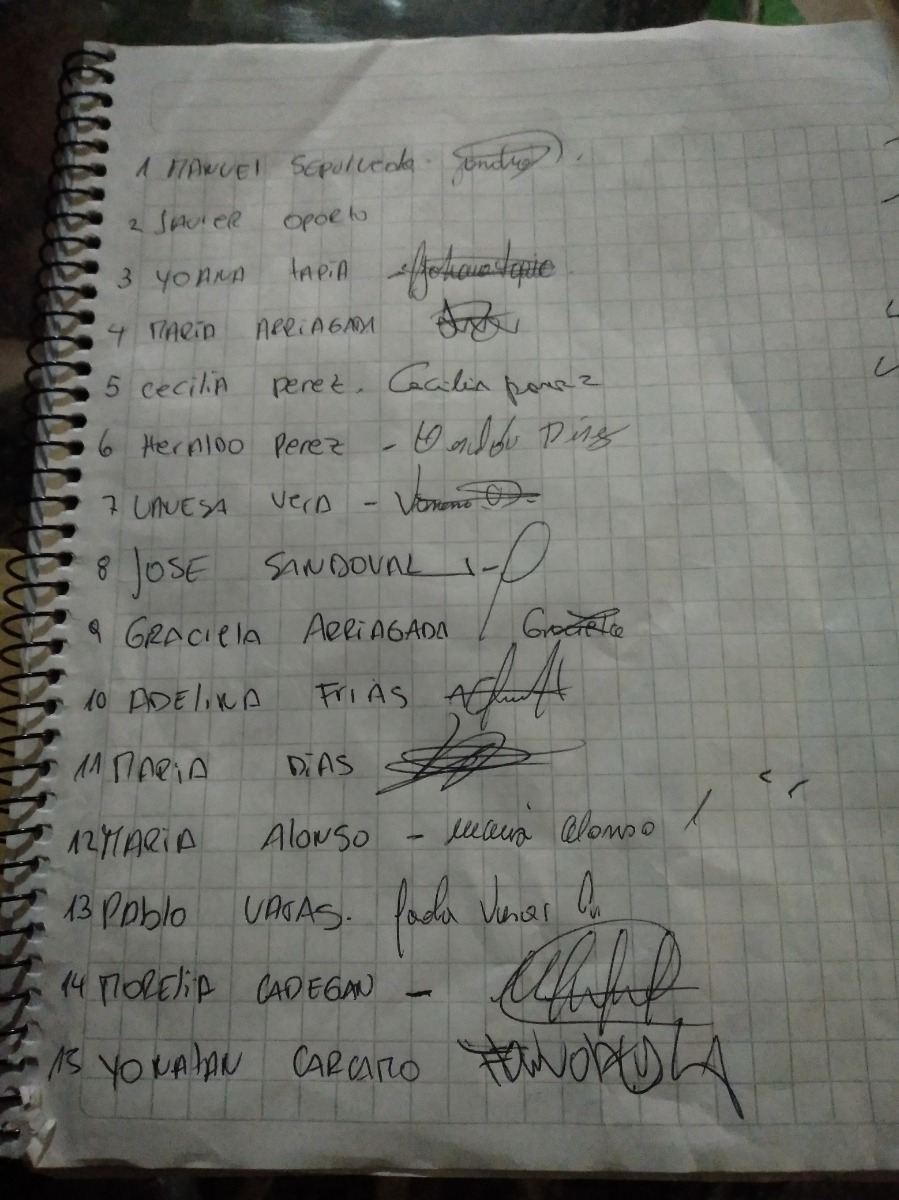 1 MANUEL Sepulveda.
2 JAVIER OPORTO
3 YOANA TAPIA -
4 MARIA ARRIAGADA
5 cecilia perez. Cecilia perez
6 HERALDO PEREZ -
7 VANESA VERA -
8 JOSE SANDOVAL
9 GRACIELA ARRIAGADA Graciela
10 ADELINA FRIAS
11 MARIA DIAS
12 MARIA ALONSO - María Alonso
13 PABLO
14 MORELIA CADEGAN -
15 YONATAN CARCAMO